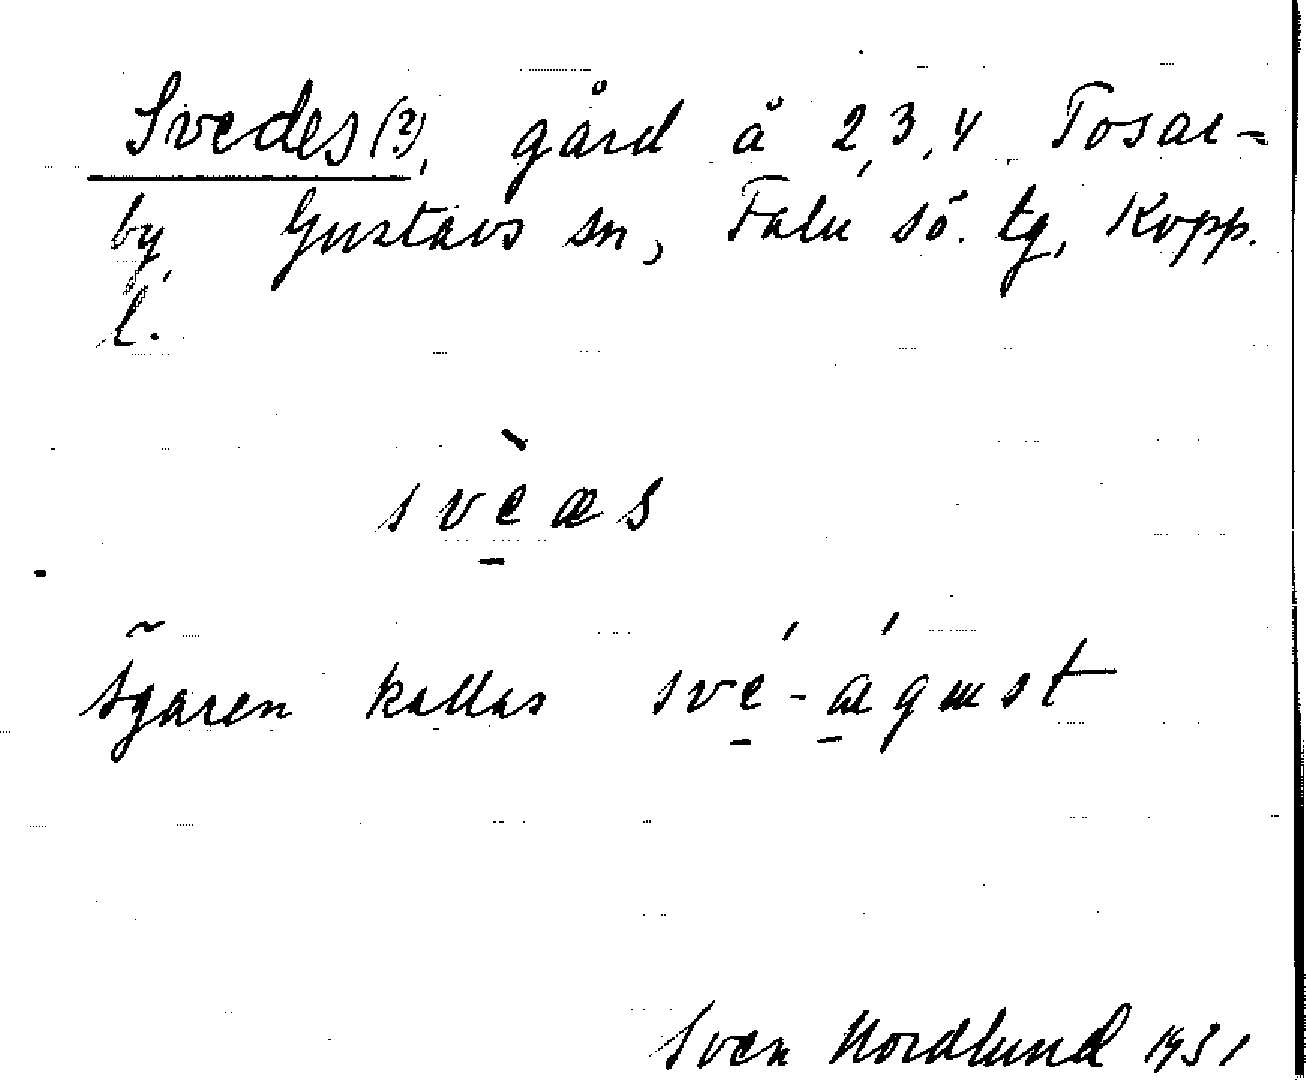 Svedes (?), gård å 2, 3, 4 Tosar-
by, Gustavs sn, Falu sö. tg, Kopp.
l.
svè̱æs
Ägaren kallas své̱-á̱gust
Sven Nordlund 1931